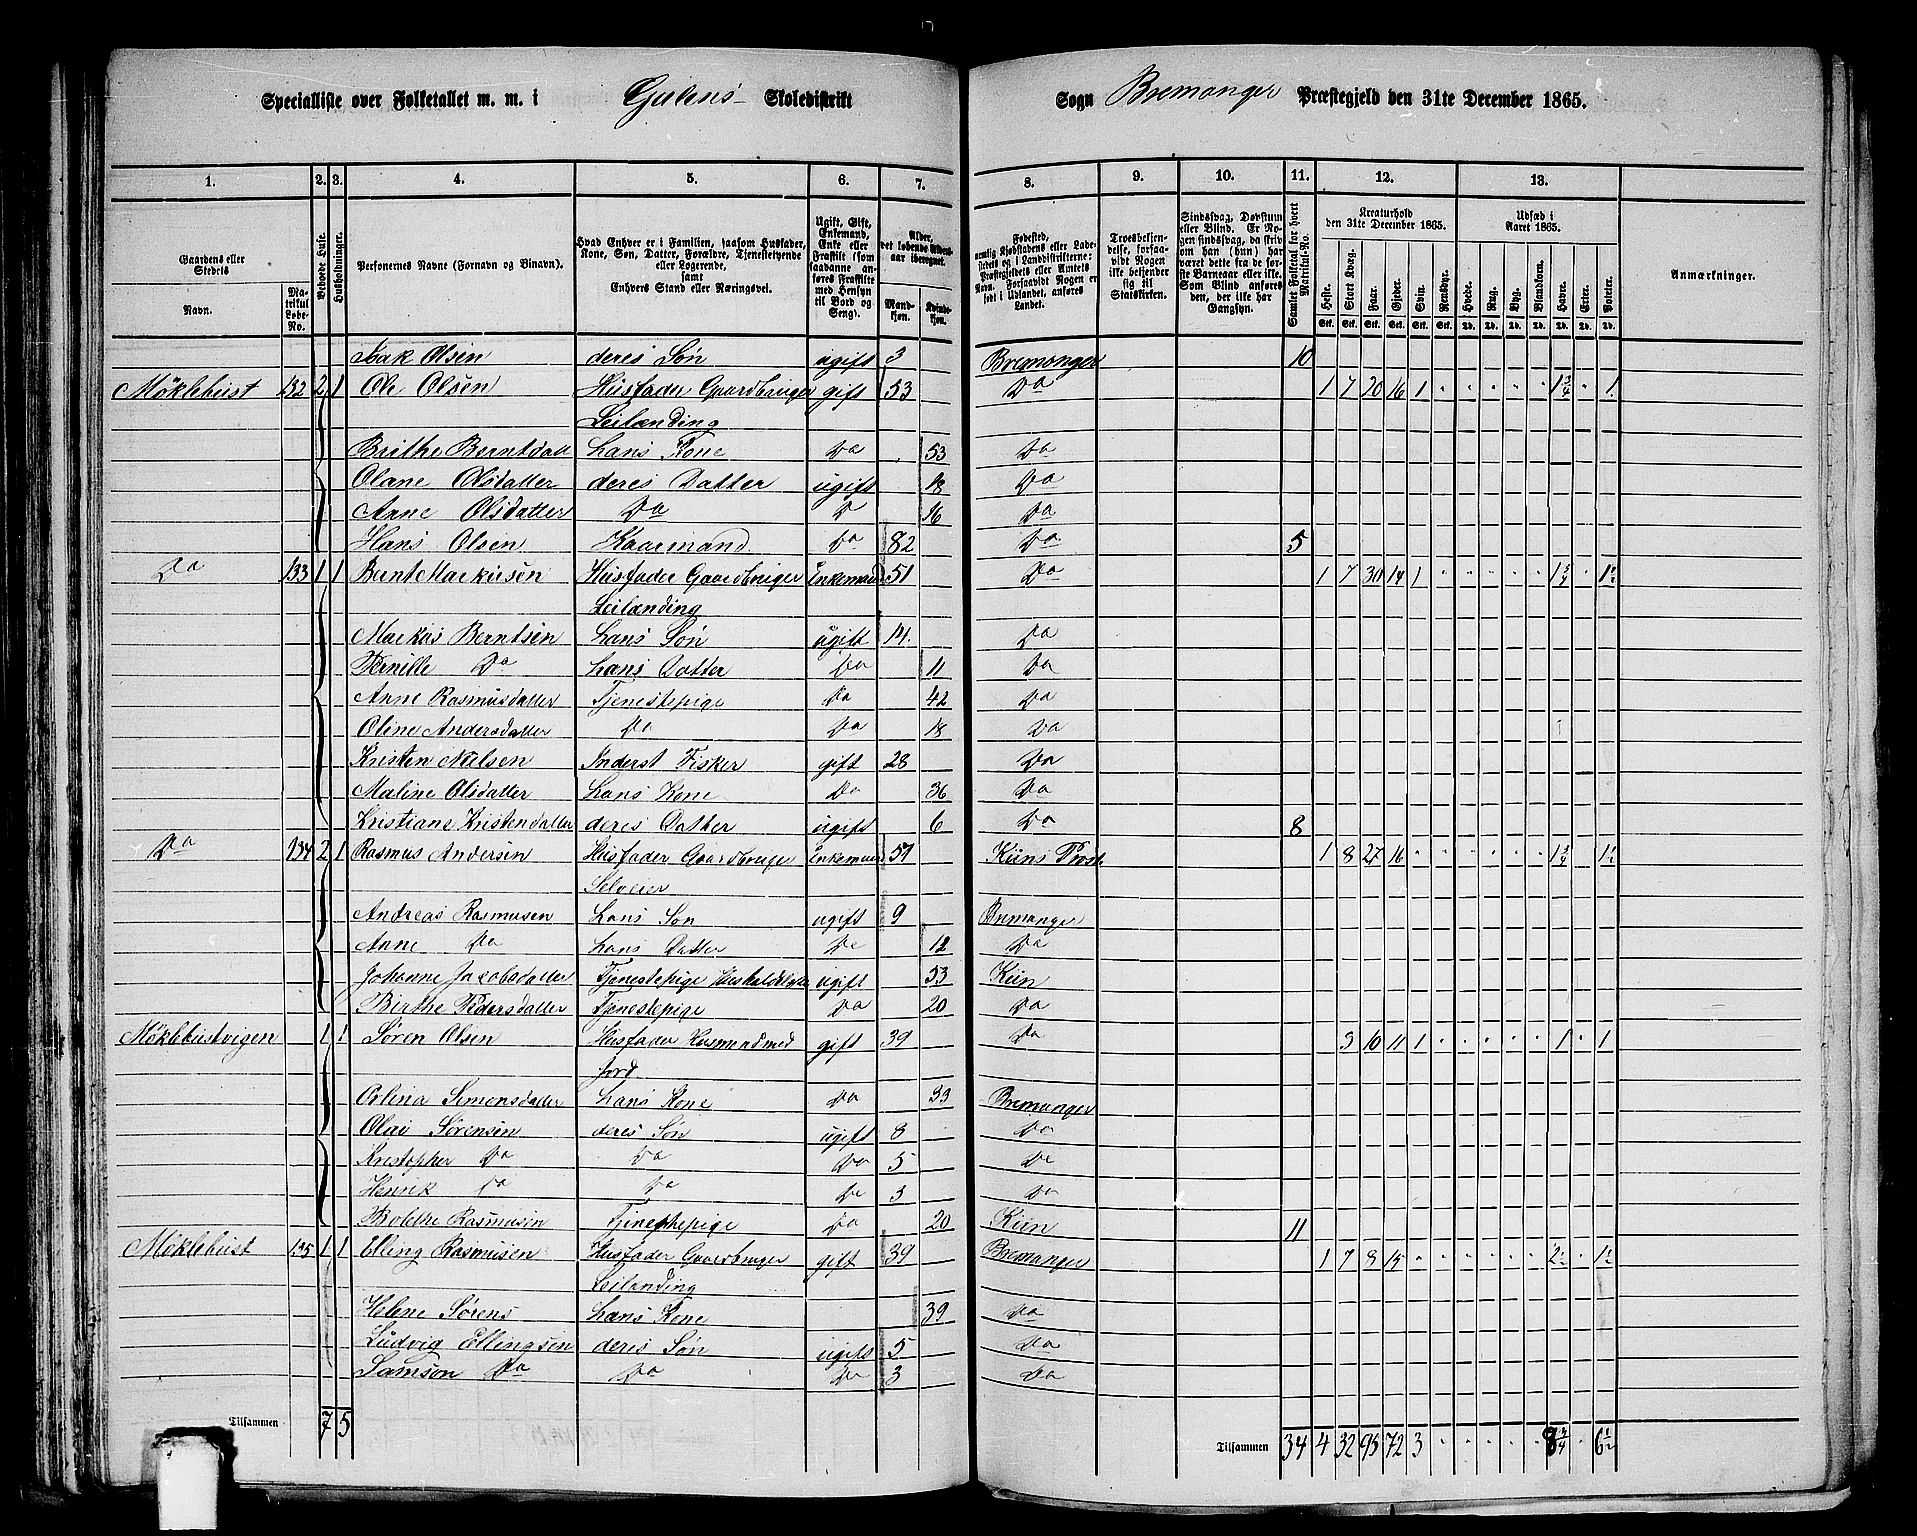 Specialliste over Folketallet m. m. i Gulens Skoledistrikt Sogn Bremanger Præstegjeld den 31te December 1865.
1. 2. 3. 4. 5. 6. 7. 8. 9. 10. 11. 12. 13.
Gaardens eller Stedets Navn. Matrikul Løbe-No. Beboede Huse. Husholdninger. Personernes Navne (Fornavn og Binavn). Hvad Enhver er i Familien, saasom Husfader, Kone, Søn, Datter, Forældre, Tjenestetyende eller Logerende, samt Enhvers Stand eller Næringsvei. Ugift, Gift, Enkemand, Enke eller Fraskilt (som saadanne anføres Fraskilte med Hensyn til Bord og Seng). Alder, det løbende Alders-aar iberegnet. Mand-kjøn. Kvinde-kjøn.
Troesbekjendelse, forsaavidt Nogen ikke bekjender sig til Statskirken. Sindssvag, Døvstum eller Blind. Samlet Folketal for hvert Matrikul-No. Kreaturhold den 31te December 1865. Udsæd i Aaret 1865. Anmærkninger.
Heste. Stort Kvæg. Faar. Gjeder. Svin. Rensdyr. Hvede. Rug. Byg. Blandkorn. Havre. Erter. Poteter.
Isak Olsen deres Søn ugift 3 Bremanger 10
Möklebust 132 2 1 Ole Olsen Husfader Gaardbruger gift 53 Do 1 7 20 16 1 1¾ 1
Leilænding
Brithe Berntdatt hans Kone Do 53 Do
Olane Olsdatter deres Datter ugift 18 Do
Anne Olsdatter Do D 16 Do
Hans Olsen Kaarmand Do 82 Do 5
Do 133 1 1 Bernt Markusen Husfader Gaardbruger Enkemand 51 Do 1 7 30 14 1 1¾ 1½
Leilænding
Markus Berntsen hans Søn ugift 14 Do
Pernille Do hans Datter Do 11 Do
Anne Rasmusdatter Tjenestepige Do 42 Do
Oline Andersdatter Do Do 18 Do
Kristen Nelsen Inderst Fisker gift 28 Do
Maline Olsdatter hans Kone Do 36 Do
Kristiane Kristendatter deres Datter ugift 6 Do 8
Do 134 2 1 Rasmus Andersen Husfader Gaardbruger Enkemand 57 Kiins Præst 1 8 27 16 1¾ 1½
Selveier
Andreas Rasmusen hans Søn ugift 9 Bremanger
Anne Do hans Datter Do 12 Do
Johanne Jacobsdatter Tjenestepige ugift 53 Kiin
Birthe Pedersdatter Tjenestepige Do 20 Do
Möklebustvigen 1 1 Søren Olsen Husfader Husmand med gift 39 Do 3 10 11 1 1 1
Jord
Oolina Simonsdatter hans Kone Do 33 Bremanger
Olai Sørensen deres Søn ugift 8 Do
Kristopher Do Do Do 5 Do
Henrik Do Do Do 3 Do
Bolethe Rasmusen Tjenestepige Do 20 Kiin 11
Möklebust 135 1 1 Elling Rasmusen Husfader Gaardbruger gift 39 Bremanger 1 7 8 15 2½ 1½
Leilanding
Helene Sørens hans Kone 39 Do
Ludvig Ellingsen deres Søn ugift 5 Do
Samson Do Do Do 3 Do
Tilsammen 7 5 Tilsammen 34 4 32 95 72 3 8¾ 6½